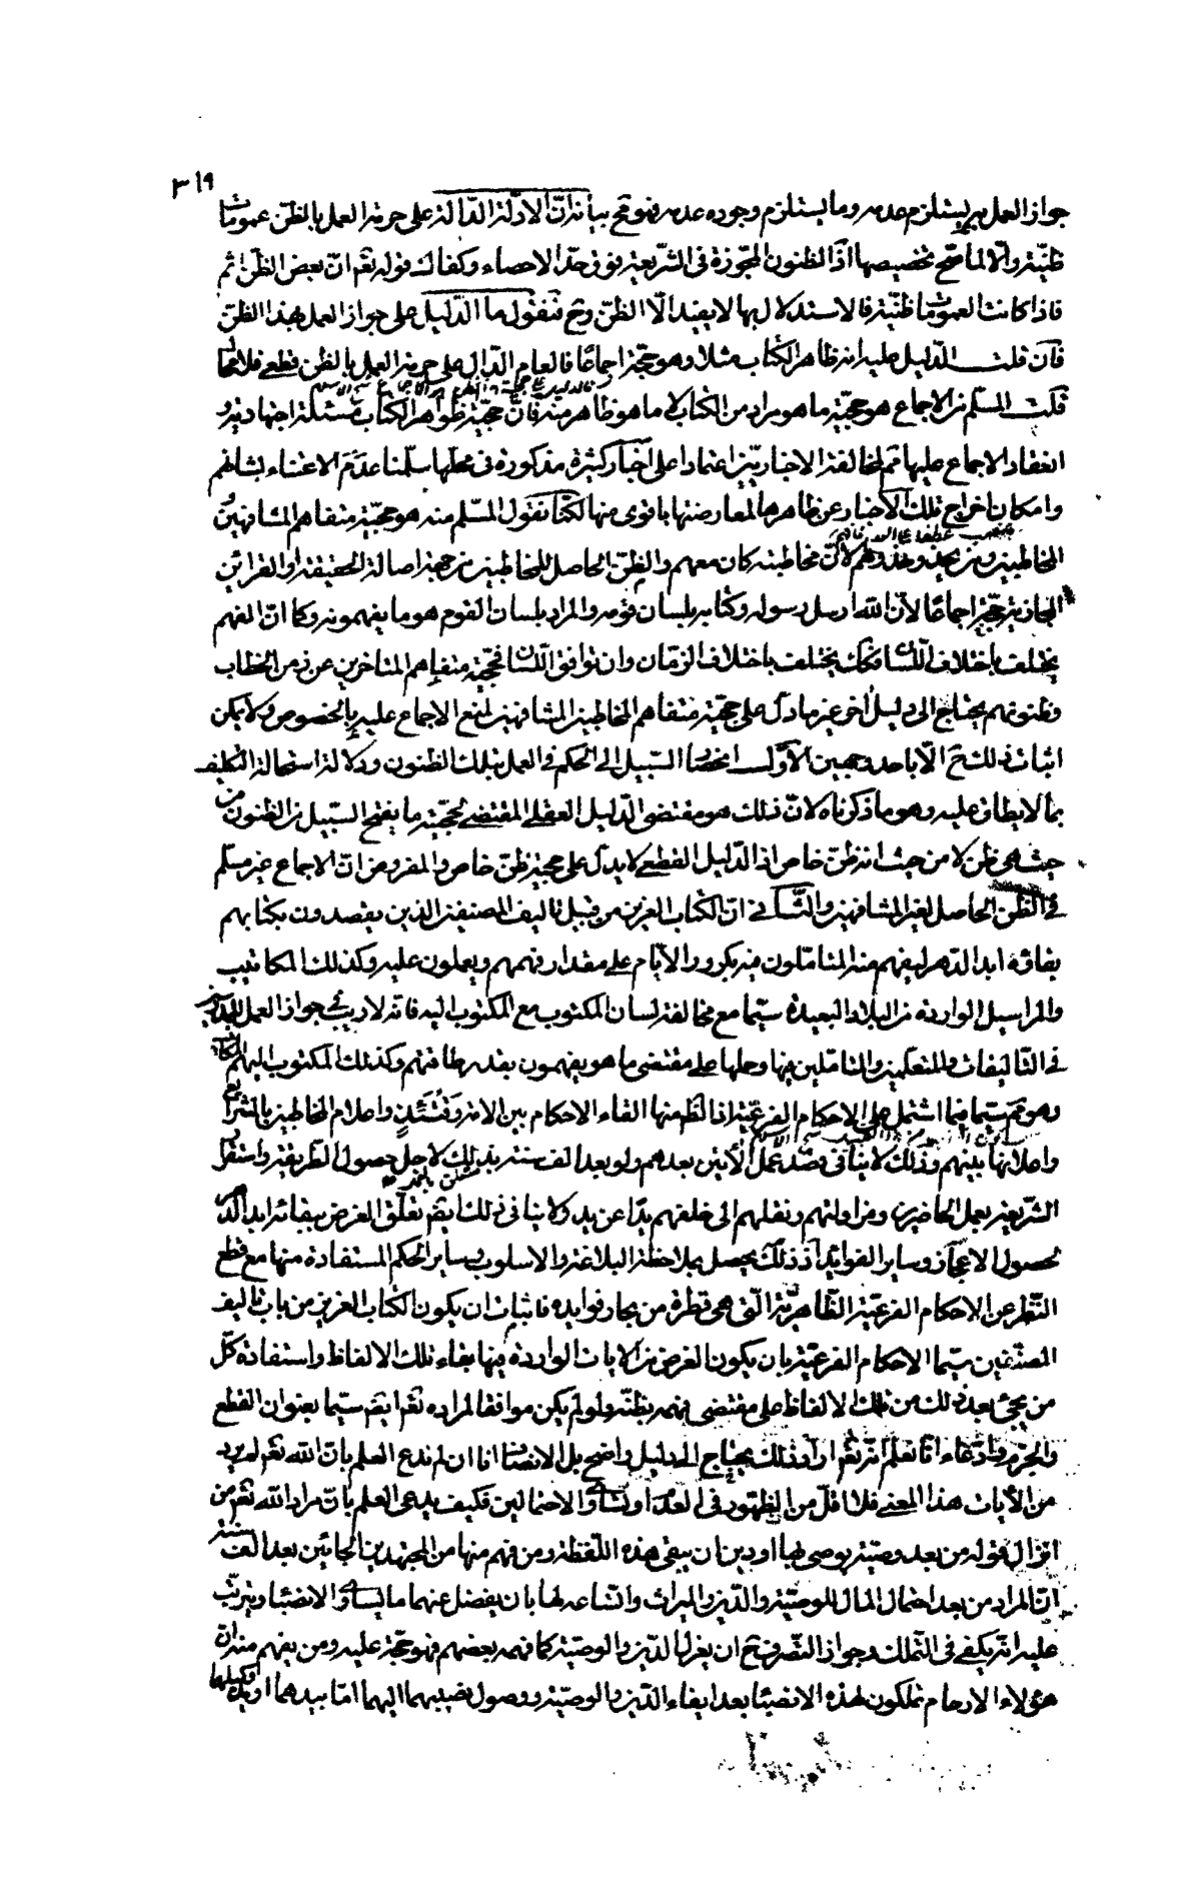 ٣١٩
جواز العمل به يستلزم عدمه وما يستلزم وجوده عدمه فهو مح بيانه ان الادلة الدالة على حرمة العمل بالظن عمومات
ظنية والا لما صح تخصيصها اذ الظنون المجوزة فى الشريعة فوق حد الاحصاء وكفاك قوله تعم ان بعض الظن اثم
فاذا كانت العمومات ظنية فالاستدلال بها لا يفيد الا الظن وح فنقول ما الدليل على جواز العمل بهذا الظن
فان قلت الدليل عليه انه ظاهر الكتاب مثلا وهو حجة اجماعا فالعام الدال على حرمة العمل بالظن قطعى
قلت المسلم من الاجماع هو حجية ما هو مراد من الكتاب لا ما هو ظاهر منه فان حجية ظواهر الكتاب مسئلة اجتهادية و
انعقاد الاجماع عليها مم لمخالفة الاخباريين اعتمادا على اخبار كثيرة مذكورة فى محلها سلمنا عدم الاعتناء بشانهم
وامكان اخراج تلك الاخبار عن ظاهرها لمعارضتها باقوى منها لكنا نقول المسلم منه هو حجية متفاهم المشافهين
المخاطبين ومن يحذو حذوهم لان مخاطبته كان معهم والظن الحاصل للمخاطبين من جهة اصالة الحقيقة او القرائن
المجازية حجة اجماعا لان الله ارسل رسوله وكتابه بلسان قومه والمراد بلسان القوم هو ما يفهمونه وكما ان الفهم
يختلف باختلاف اللسان فكك يختلف باختلاف الزمان وان توافق اللسان فحجية متفاهم المتاخرين عن زمن الخطاب
وظنونهم يحتاج الى دليل اخر غير ما دل على حجية متفاهم المخاطبين المشافهين لمنع الاجماع عليه بالخصوص ولا يمكن
اثبات ذلك ح الا باحد وجهين الاول انحصار السبيل الى الحكم فى العمل بتلك الظنون ودلالة استحالة التكليف
بما لا يطاق عليه وهو ما ذكرناه لان ذلك هو مقتضى الدليل العقلى المقتضى لحجية ما يفتح السبيل من الظنون من
حيث هى ظن لا من حيث انه ظن خاص اذ الدليل القطعى لا يدل على حجية ظن خاص والمفروض ان الاجماع غير مسلم
فى الظن الحاصل لغير المشافهين والثانى ان الكتاب العزيز من قبيل تاليف المصنفين الذين يقصدون بكتابهم
بقاؤه ابد الدهر ليفهم منه المتاملون فيه بكرور الايام على مقدار فهمهم ويعملون عليه وكذلك المكاتيب
والمراسيل الواردة من البلاد البعيدة سيما مع مخالفة لسان المكتوب مع المكتوب اليه فانه لا ريب فى جواز العمل
فى التاليفات للمتعلمين والمتاملين فيها وحملها على مقتضى ما هو يفهمون بقدر طاقتهم وكذلك المكتوب اليهم
وهو مم سيما فيما اشتمل على الاحكام الفرعية اذ الظ منها القاء الاحكام بين الامة واعلام المخاطبين بالشرائع
واعلانها بينهم وذلك لا ينافى قصد عمل الآتين بعدهم ولو بعد الف سنة بذلك لاجل حصول الطريقة واستقرار
الشريعة بعمل الحاضرين ومزاولتهم ونقلهم الى خلفهم يدا عن يد ولا ينافى ذلك ايضم تعلق الغرض ببقائه ابد الدهر
لحصول الاعجاز وساير الفوائد اذ ذلك يحصل بملاحظة البلاغة والاسلوب وساير الحكم المستفادة منها مع قطع
النظر عن الاحكام الفرعية الظاهرية التى هى قطرة من بحار فوايده فاثبات ان يكون الكتاب العزيز من باب تاليف
المصنفين سيما الاحكام الفرعية بان يكون الغرض من الايات الواردة فيها بقاء تلك الالفاظ واستفادة كل
من يجئ بعد ذلك من تلك الالفاظ على مقتضى فهمه بظنه ولو لم يكن موافقا لمراده تعم ايضم سيما بعنوان القطع
والجزم وادعاء انا نعلم انه تعم اراد ذلك يحتاج الى دليل واضح بل الانصاف انا ان لم ندع العلم بان الله تعم لم يرد
من الآيات هذا المعنى فلا اقل من الظهور فى العدم او تساوى الاحتمالين فكيف يدعى العلم بان مراد الله تعم من
انزال قوله من بعد وصية يوصى بها او دين ان يبقى هذه اللفظة ومن فهم منها من المجتهدين الجائين بعد الف سنة
ان المراد من بعد احتمال المال للوصية والدين والميراث واتساعه لها بان يفضل عنهما ما يساوى الانصباء ويترتب
عليه انه يكفى فى التملك وجواز التصرف ح ان يعزل الدين والوصية كما فهمه بعضهم فهو حجة عليه ومن يفهم منه ان
هؤلاء الارحام تملكون لهذه الانصباء بعد ايفاء الدين والوصية ووصول نصيبهما اليهما اما بيدهما او بيد وكيلها